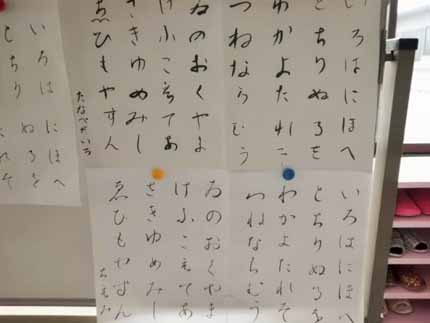 いろはにほへ
とちりぬるを
わかよたれそ
つねならむう
ゐのおくやま
けふこえてあ
さきゆめみし
ゑひもせすん
いろはにほへ
とちりぬるを
わかよたれそ
つねならむう
ゐのおくやま
けふこえてあ
さきゆめみし
ゑひもせすん
いろはにほへ
とちりぬるを
れそ